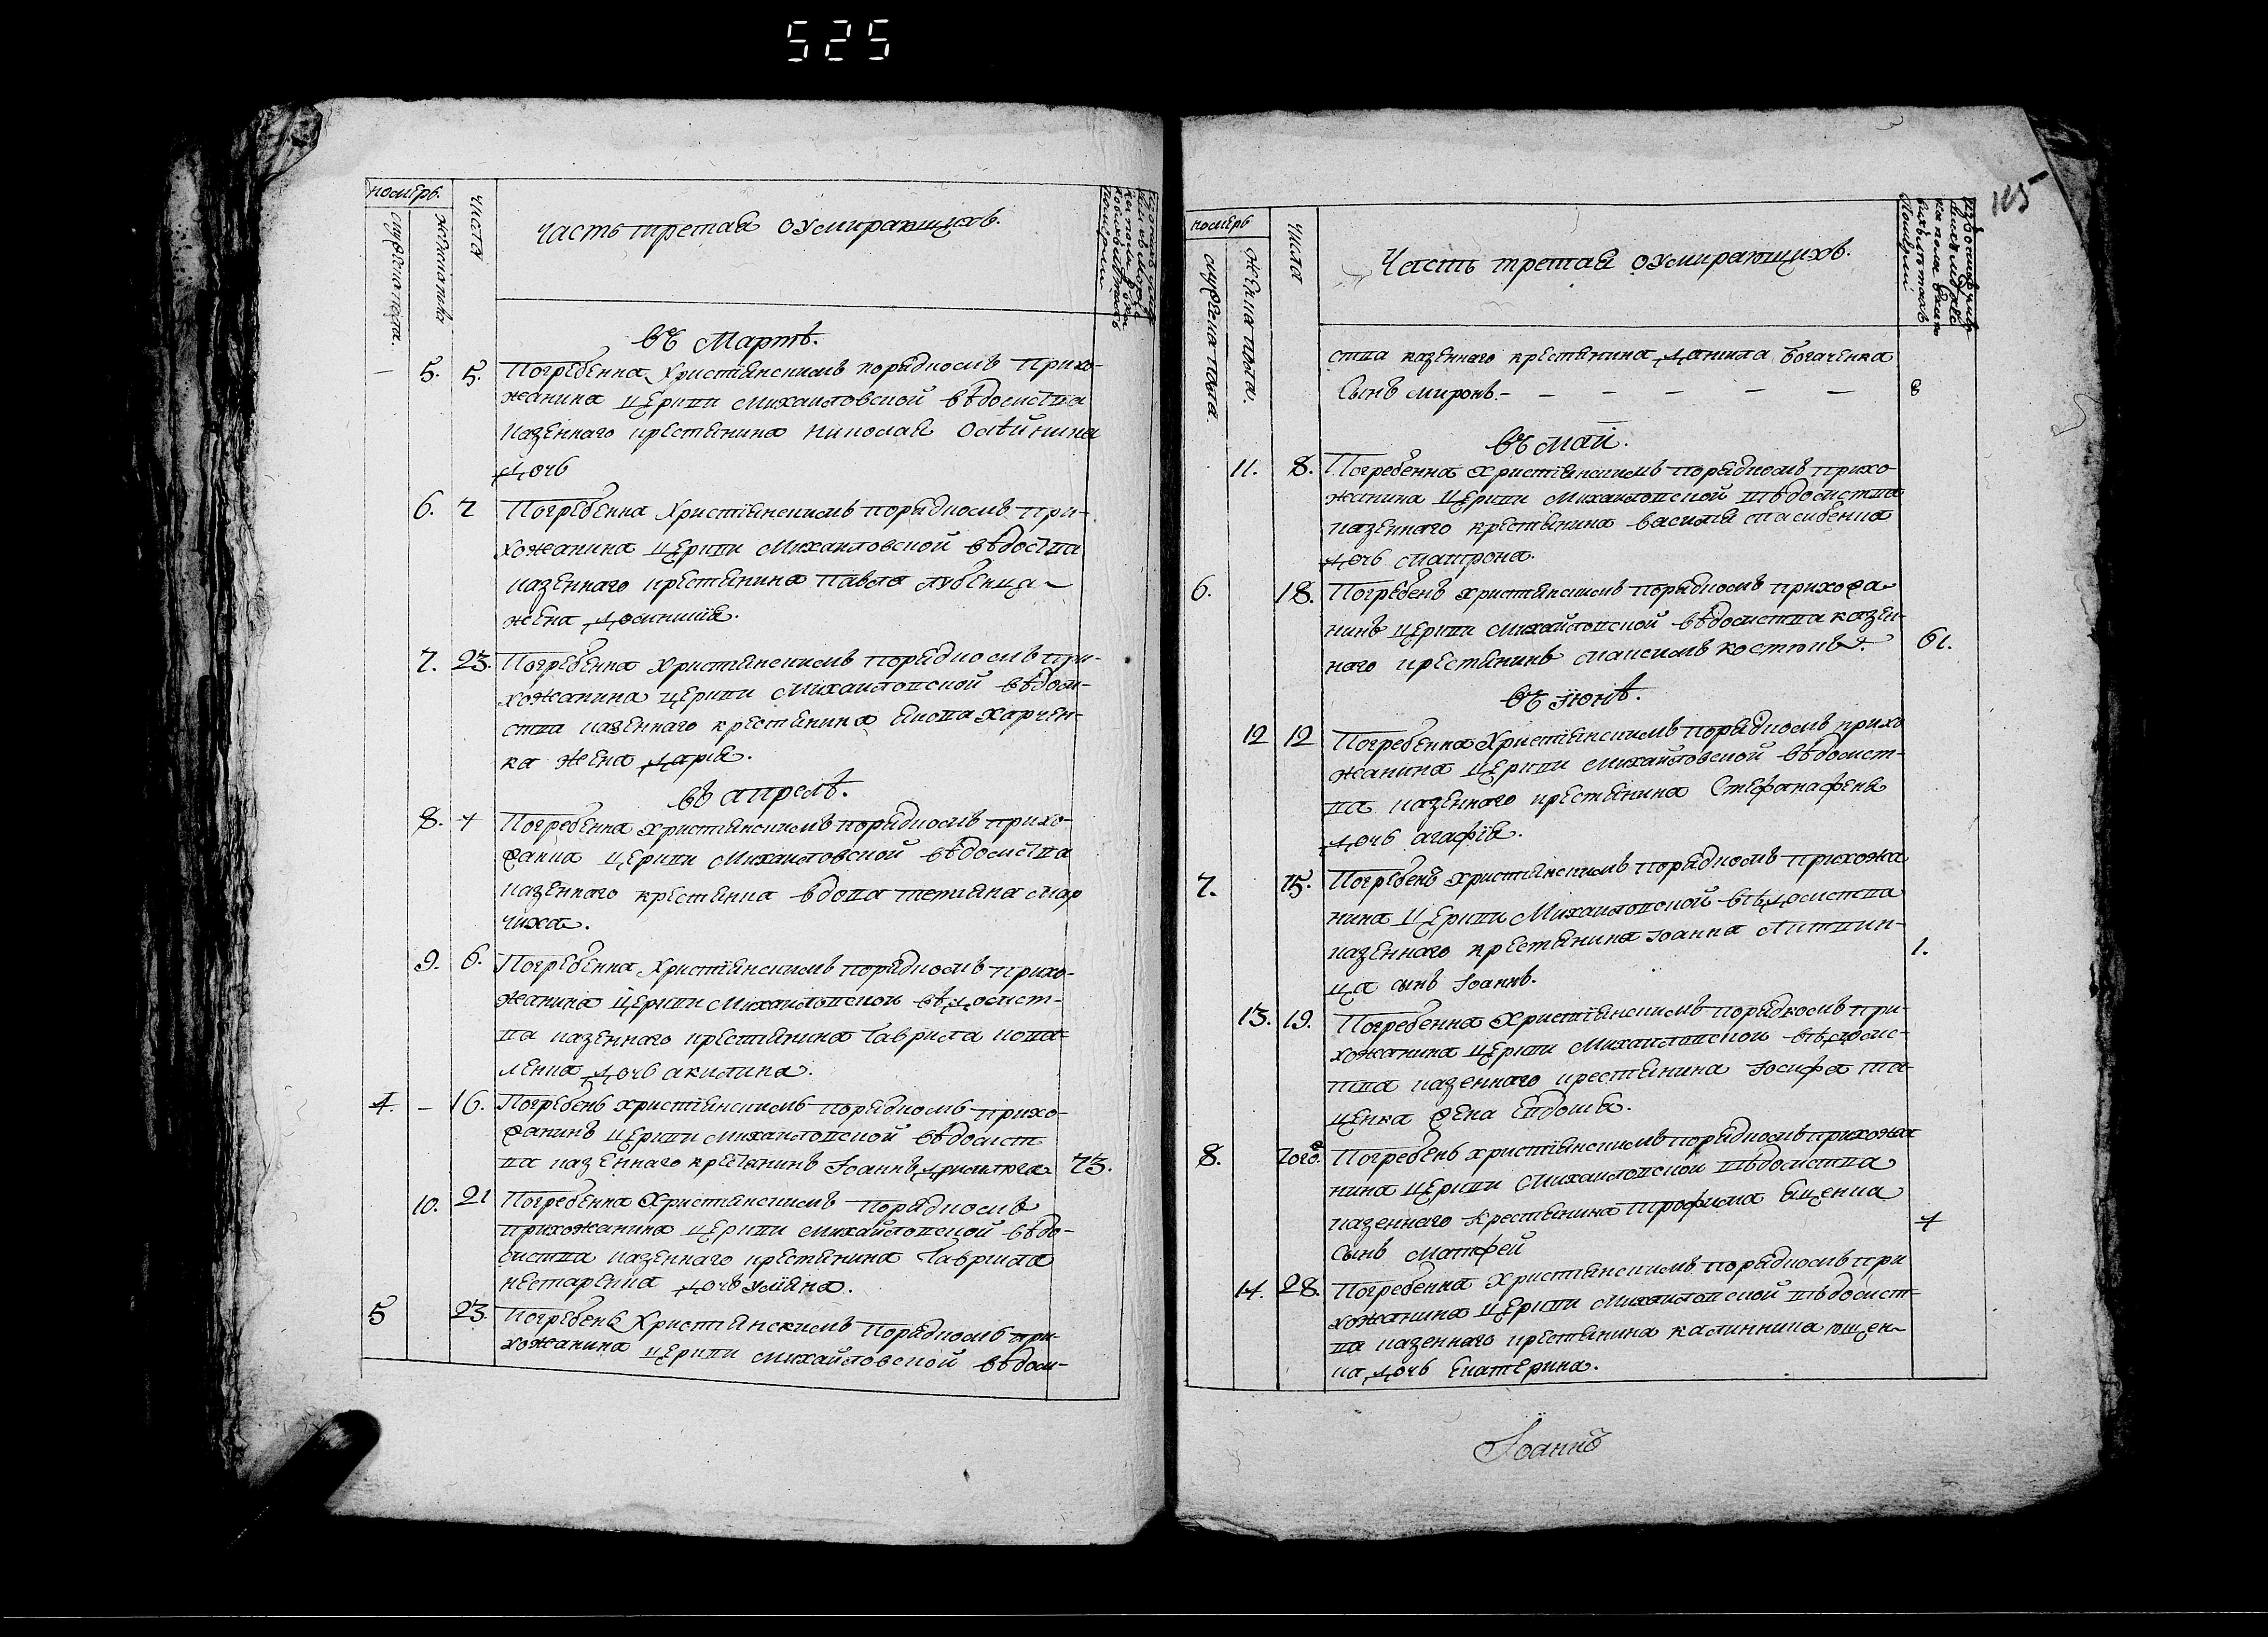 525
номеръ.
мужеска пола.
женска пола
числа
часть третая оумирающихъ.
въ Мартѣ.
– 5. 5. Погребенна Христїанскимъ порядкомъ прихо-
жанина церкви Михаиловской вѣдомства
казенного крестянина николая
дочь
6. 7 Погребенна Христїанскимъ порядкомъ при-
хожанина церкви Михаиловской вѣдоства
казенного крестянина павла лубенца
жена домникїя.
7. 23. Погребенна христїанскимъ порядкомъ при-
хожанина церкви Михаиловской вѣдом-
ства казенного крестянина якова харчен-
ка жена дарїя.
въ апрелѣ.
8. 4 Погребенна христїанскимъ порядкомъ прихо-
жанка церкви Михаиловской вѣдомства
казенного крестянка вдова тетиана мар
чиха.
9. 6. Погребенна Христїанскимъ порядкомъ прихо-
жанина церкви Михаиловской вѣдомст-
ва казенного крестянина гаврила кова-
ленка дочь акилина.
4. – 16. Погребенъ христїанскимъ порядкомъ прихо-
жанинъ церкви Михаиловской вѣдомст
ва казенного крестянинъ Іоаннъ 73.
10. 21 Погребенна Христїанскимъ порядкомъ
прихожанина церкви михайловской вѣдо-
мства казенного крестянина гаврила
нестаренка дочь улїяна.
5 23. Погребенъ Христїанскимъ порядкомъ при-
хожанина церкви михайловской вѣдом-
115
номеръ
мужеска пола.
женска пола.
числа
Часть третая оумирающихъ.
ства казенного крестянина данила богаченка
сынъ миронъ. – – – – – –
въ май.
11. 8. Погребенна христїанскимъ порядкомъ прихо
жанина церкви Михаиловской вѣдомства
казенного крестянина василя
дочь матрона.
6. 18. Погребенъ христїанскимъ порядкомъ прихожа
нинъ церкви михайловской вѣдомства казен-
ного крестянинъ максимъ костюкъ. 61.
въ їюнѣ.
12 12 Погребенна Христїанскимъ порядкомъ прихо
жанина церкви Михайловской вѣдомст-
ва казенного крестянина Стефана
дочь агафїя.
7. 15. Погребенъ христїанскимъ порядкомъ прихожа
нина церкви Михаиловской вѣдомства
казенного крестянина Іоанна Литвин-
ца сынъ Іоаннъ. 1.
13. 19. Погребенна Христїанскимъ порядкомъ при-
хожанина церкви Михаиловской вѣдомс-
тва казенного крестянина Іосифа та-
ценка жена Евдокїя.
8. того. Погребенъ христїанскимъ порядкомъ прихожа
нина церкви Михаиловской вѣдомства
казенного крестянина трофима ященка
сынъ матфей 4
14. 28. Погребенна христїанскимъ порядкомъ при
хожанина церкви михаиловской вѣдомст-
ва казенного крестянина калинника ющен-
ка дочь Екатерина.
Іоаннъ